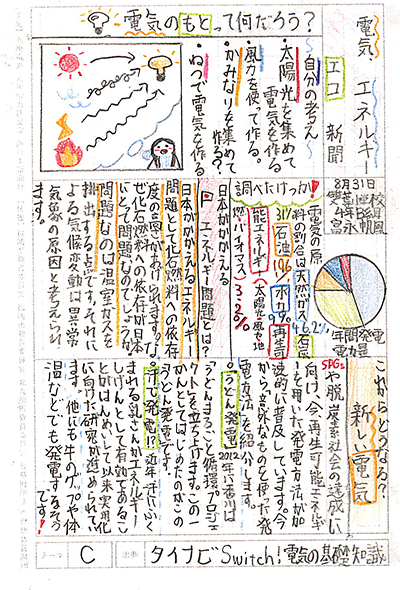 電気のもとって何だろう?
電気、エネルギー
エコ新聞
・自分の考え
・太陽光を集めて
電気を作る
・風力を使って作る。
・かみなりを集めて
作る?
・ねつで電気を作る
8月31日
調べたけっか!
電気の原
料の割合は天然ガス
石油
水力
再生可
能エネルギー
太陽光
バイオマス
年間発電
電力量
日本がかかえる
エネルギー問題とは?
日本がかかえるエネルギー
問題として化石燃料への依存
度の高さがあげられます。な
ぜ化石燃料への依存が日本
にとって問題なのでしょうか。
問題なのは温室ガスを
排出する点です。それに
よる気候変動は異常
気象の原因と考えられ
ます。
これからどうなる?
新しい電気
SDGsや脱炭素社会の達成に
向け、今、再生可能エネルギ
ーを用いた発電方法が加
速的に普及しています。今
から意外なものを使った発
電方法を紹介します。
①うどん発電
2012年に香川は
うどんまるごと循環プロジェ
クトを立ち上げます。この一
かんとしてはじめたのがこの
うどん発電です。
②牛で発電!?
近年、牛にふく
まれる乳さんがエネルギー
しげんとして有効であるこ
とがはんめいして以来、実用化
に向けた研究が進められてい
ます。他にも牛のゲップや体
温などでも発電するそう
です!
テーマ C
出典 タイナビSwitch!電気の基礎知識